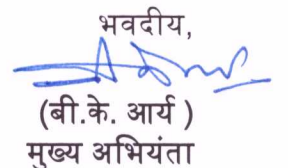 भवदीय,
(बी.के. आर्य )
मुख्य अभियंता